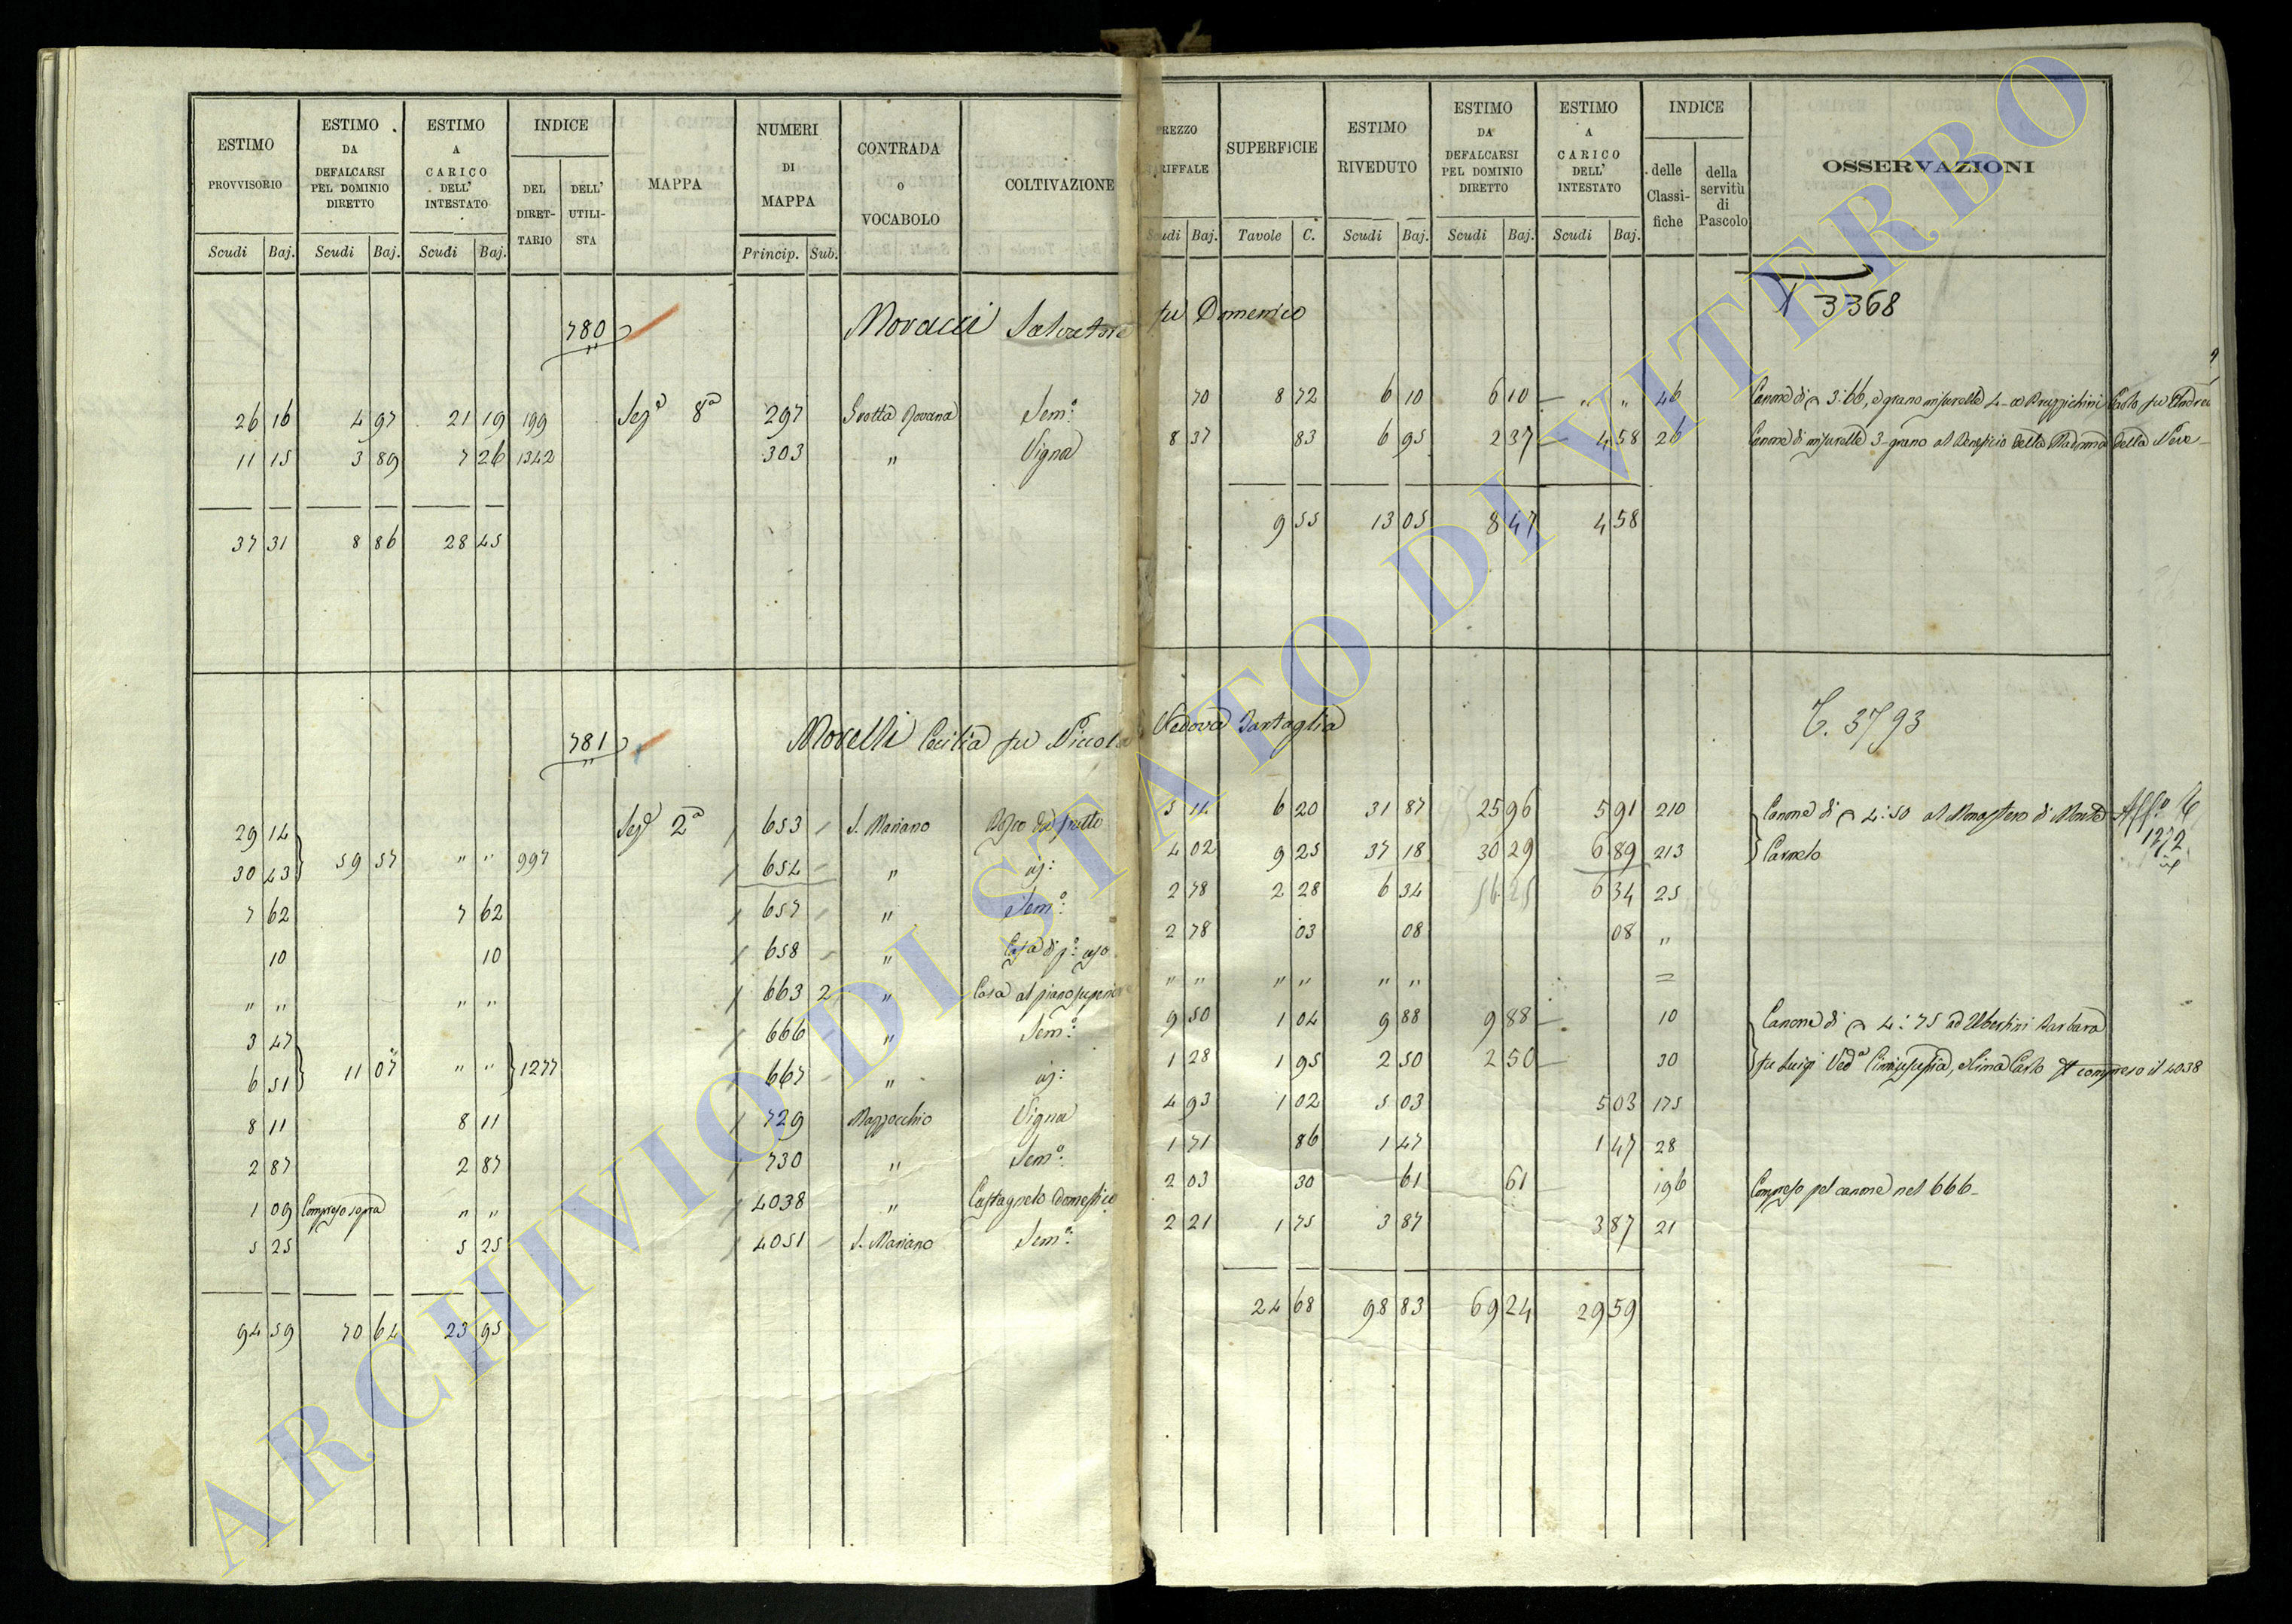 ESTIMO PROVVISORIO Scudi Baj. ESTIMO DA DEFALCARSI PEL DOMINIO DIRETTO Scudi Baj. ESTIMO A CARICO DELL' INTESTATO Scudi Baj. INDICE DEL DIRET-TARIO DELL' UTILI-STA MAPPA NUMERI DI MAPPA Princip. Sub. CONTRADA O VOCABOLO COLTIVAZIONE
780 Moracci Salvatore
26 16 4 97 21 19 199 Sez.e 8a 297 Grotta Sem.o
11 15 3 89 7 26 1342 303 " Vigna
37 31 8 86 28 45
781 Morelli Cecilia fu Niccola
29 14 Sez.e 2a 653 S. Mariano
59 57 " " 997
30 43 654 "
7 62 7 62 657 " Sem.o
10 10 658 " Casa di p.o uso
" " " " 663 2 " Casa al piano superiore
3 47 666 " Sem.o
11 07 " " 1277
6 51 667 "
8 11 8 11 729 Mazzocchio Vigna
2 87 2 87 730 " Sem.o
1 09 Compreso sopra " " 4038 " Castagneto domestico
5 25 5 25 4051 S. Mariano Sem.o
94 59 70 64 23 95
PREZZO RIFFALE Scudi Baj. SUPERFICIE Tavole C. ESTIMO RIVEDUTO Scudi Baj. ESTIMO DA DEFALCARSI PEL DOMINIO DIRETTO Scudi Baj. ESTIMO A CARICO DELL' INTESTATO Scudi Baj. INDICE delle Classi-fiche della servitù di Pascolo OSSERVAZIONI
3368
fu Domenico
70 8 72 6 10 6 10 " " 46 Canone di 3:66, e grano misurelle 4 a Paolo fu Andrea
8 37 83 6 95 2 37 4 58 26 Canone di misurelle 3 grano al Beneficio della Madonna della Neve
9 55 13 05 8 47 4 58
Vedova Tartaglia
T. 3793
5 14 6 20 31 87 25 96 5 91 210 Canone di 4:50 al Monastero di Monte
4 02 9 25 37 18 30 29 6 89 213 Carmelo
1272
2 78 2 28 6 34 6 34 25
2 78 03 08 08 "
" " " " " " =
9 50 1 04 9 88 9 88 10 Canone di 4:75 ad Ubertini Barbara
1 28 1 95 2 50 2 50 30 fu Luigi Ved.a e Carlo compreso il 4038
4 93 1 02 5 03 5 03 175
1 71 86 1 47 1 47 28
2 03 30 61 61 196 Compreso pel canone nel 666
2 21 1 75 3 87 3 87 21
24 68 98 83 69 24 29 59
ARCHIVIO DI STATO DI VITERBO